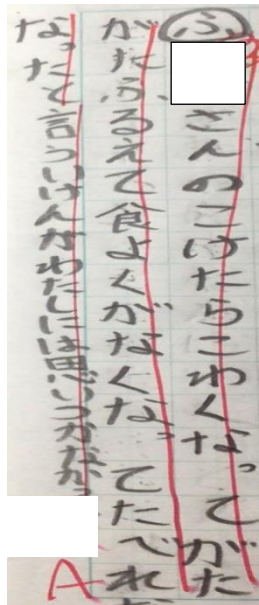 ふ さんのこけたらこわくなってがた
がたふるえて食よくがなくなってたべれな
なったと言ういけんがわたしには思いつかなかっ
A